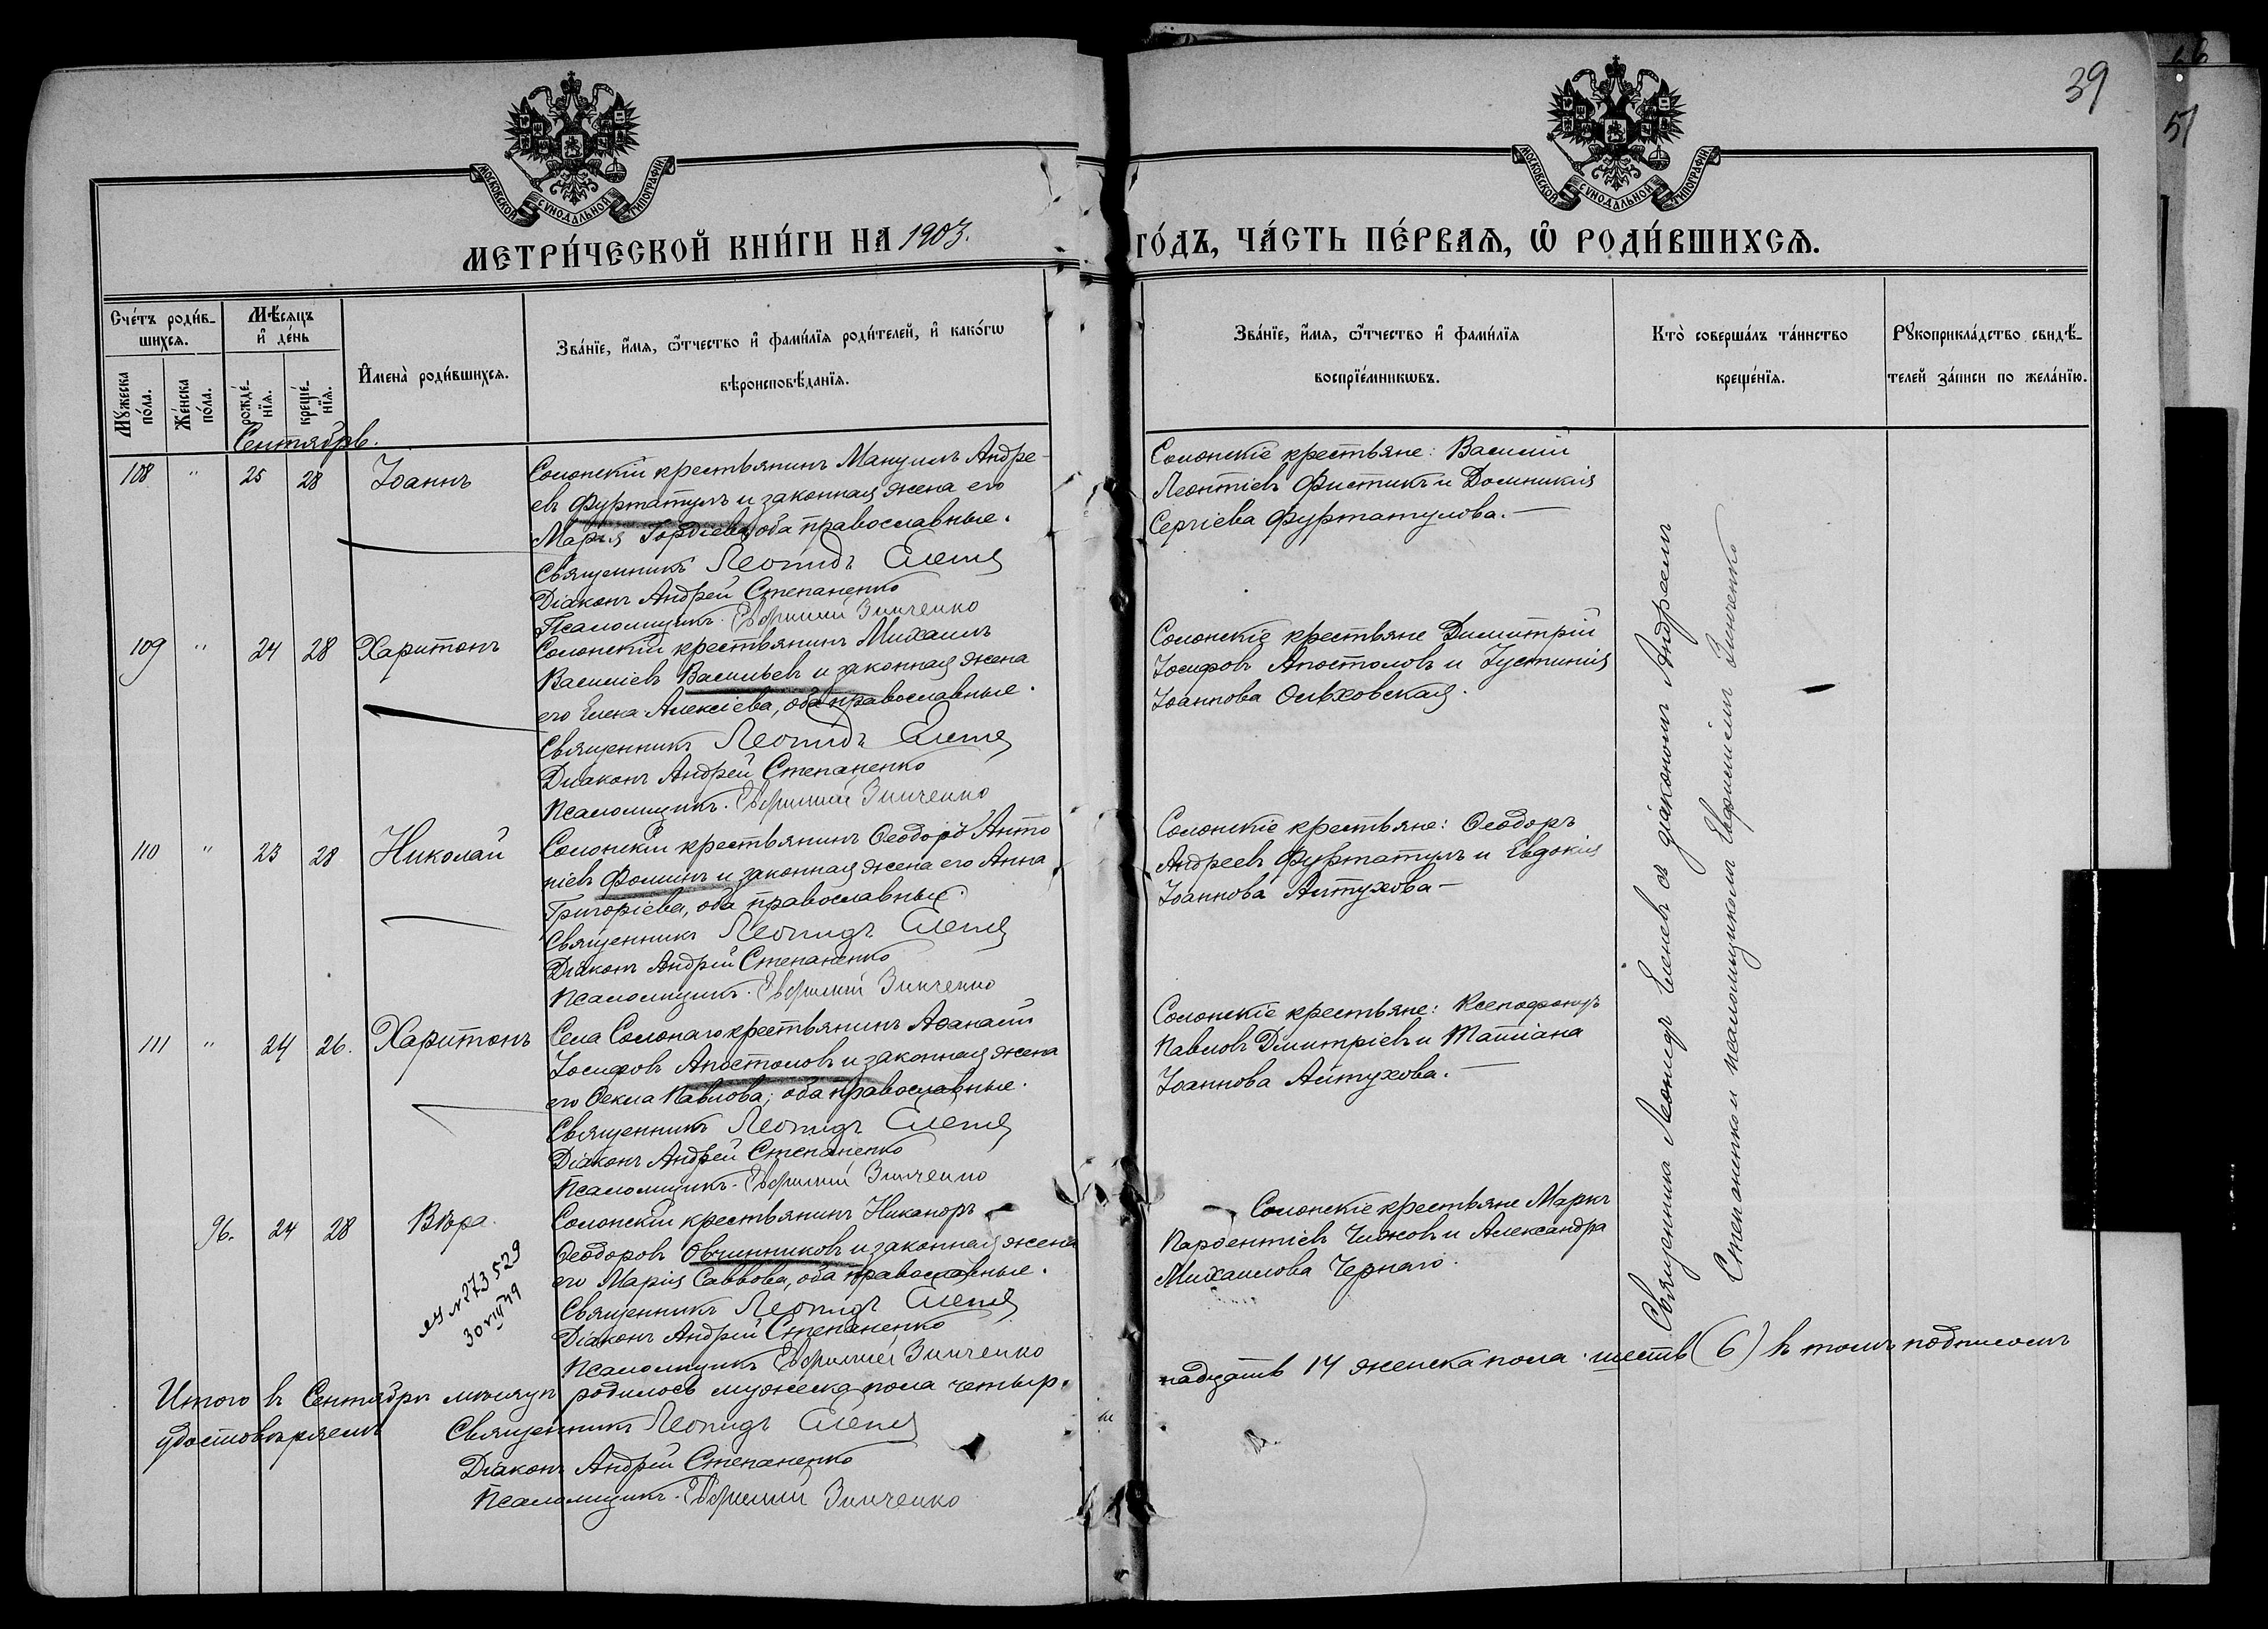 39
51
МОСКОВСКОЙ СѴНОДАЛЬНОЙ ТИПОГРАФІИ
МОСКОВСКОЙ СѴНОДАЛЬНОЙ ТИПОГРАФІИ
МЕТРИ́ЧЕСКОЙ КНИ́ГИ НА 1903. ГО́ДЪ, ЧА́СТЬ ПЕ́РВАѦ, Ѽ РОДИ́ВШИХСѦ.
Сче́тъ роди́в-
шихсѧ.
Мꙋ́жеска по́ла.
Же́нска по́ла.
Мѣ́сѧцъ и҆ де́нь
рожде́-нїѧ.
креще́-нїѧ.
И҆мена̀ роди́вшихсѧ.
Зва́нїе, и҆́мѧ, ѻ҆́тчество и҆ фами́лїѧ роди́телей, и҆ како́гѡ
вѣроисповѣ́данїѧ.
Зва́нїе, и҆́мѧ, ѻ҆́тчество и҆ фами́лїѧ
воспрїе́мникѡвъ.
Кто̀ соверша́лъ та́инство
креще́нїѧ.
Рꙋкоприкла́дство свидѣ́-
телей за́писи по жела́нїю.
Сентябрь.
108 " 25 28 Іоаннъ
Солонскій крестьянинъ Мануилъ Андре-
евъ Фуртатулъ и законная жена его
Марія Гордіева, оба православные.
Священникъ Леонидъ Еленев
Діаконъ Андрей Степаненко
Псаломщикъ Евфимий Зинченко
Солонскіе крестьяне: Василій
Леонтіевъ Фистикъ и Домникія
Сергіева Фуртатулова.—
109 " 24 28 Харитонъ
Солонскій крестьянинъ Михаилъ
Василіевъ Васильевъ и законная жена
его Елена Алексіева, оба православные.
Священникъ Леонидъ Еленев
Диаконъ Андрей Степаненко
Псаломщикъ. Евфимий Зинченко
Солонскіе крестьяне Димитрій
Іосифовъ Апостоловъ и Іустинія
Іоаннова Ольховская.
110 " 23 28 Николай
Солонскій крестьянинъ Ѳеодоръ Анто
ніевъ Фоминъ и законная жена его Анна
Григоріева, оба православные.
Священникъ Леонидъ Еленев
Діаконъ Андрей Степаненко
Псаломщикъ. Евфимий Зинченко
Солонскіе крестьяне: Ѳеодоръ
Андреевъ Фуртатулъ и Евдокія
Іоаннова Алтухова—
111 " 24 26. Харитонъ
Села Солонаго крестьянинъ Аѳанасій
Іосифовъ Апостоловъ и законная жена
его Ѳекла Павлова; оба православные.
Священникъ Леонидъ Еленев
Діаконъ Андрей Степаненко
Псаломщикъ. Евфимий Зинченко
Солонскіе крестьяне: Ксенофонтъ
Павловъ Дмитріевъ и Татіана
Іоаннова Алтухова.—
96. 24 28 Вѣра.
№ 273529
30 VIII 49
Солонскій крестьянинъ Никаноръ
Ѳеодоровъ Овчинниковъ и законная жена
его Марія Саввова, оба православные.
Священникъ Леонидъ Еленев
Діаконъ Андрей Степаненко
Псаломщикъ Евфимий Зинченко
Солонскіе крестьяне Маркъ
Парѳентіевъ Чижовъ и Александра
Михаилова Чернаго.
Священника Леонидъ Еленевъ съ діакономъ Андреемъ
Степаненко и псаломщикомъ Евфиміемъ Зинченко
Итого въ Сентябрѣ мѣсяцѣ родилось мужеска пола четыр-
надцать 14 женска пола шесть (6) въ томъ подписомъ
удостовѣряемъ
Священникъ Леонидъ Еленев
Діаконъ Андрей Степаненко
Псаломщикъ. Евфимий Зинченко